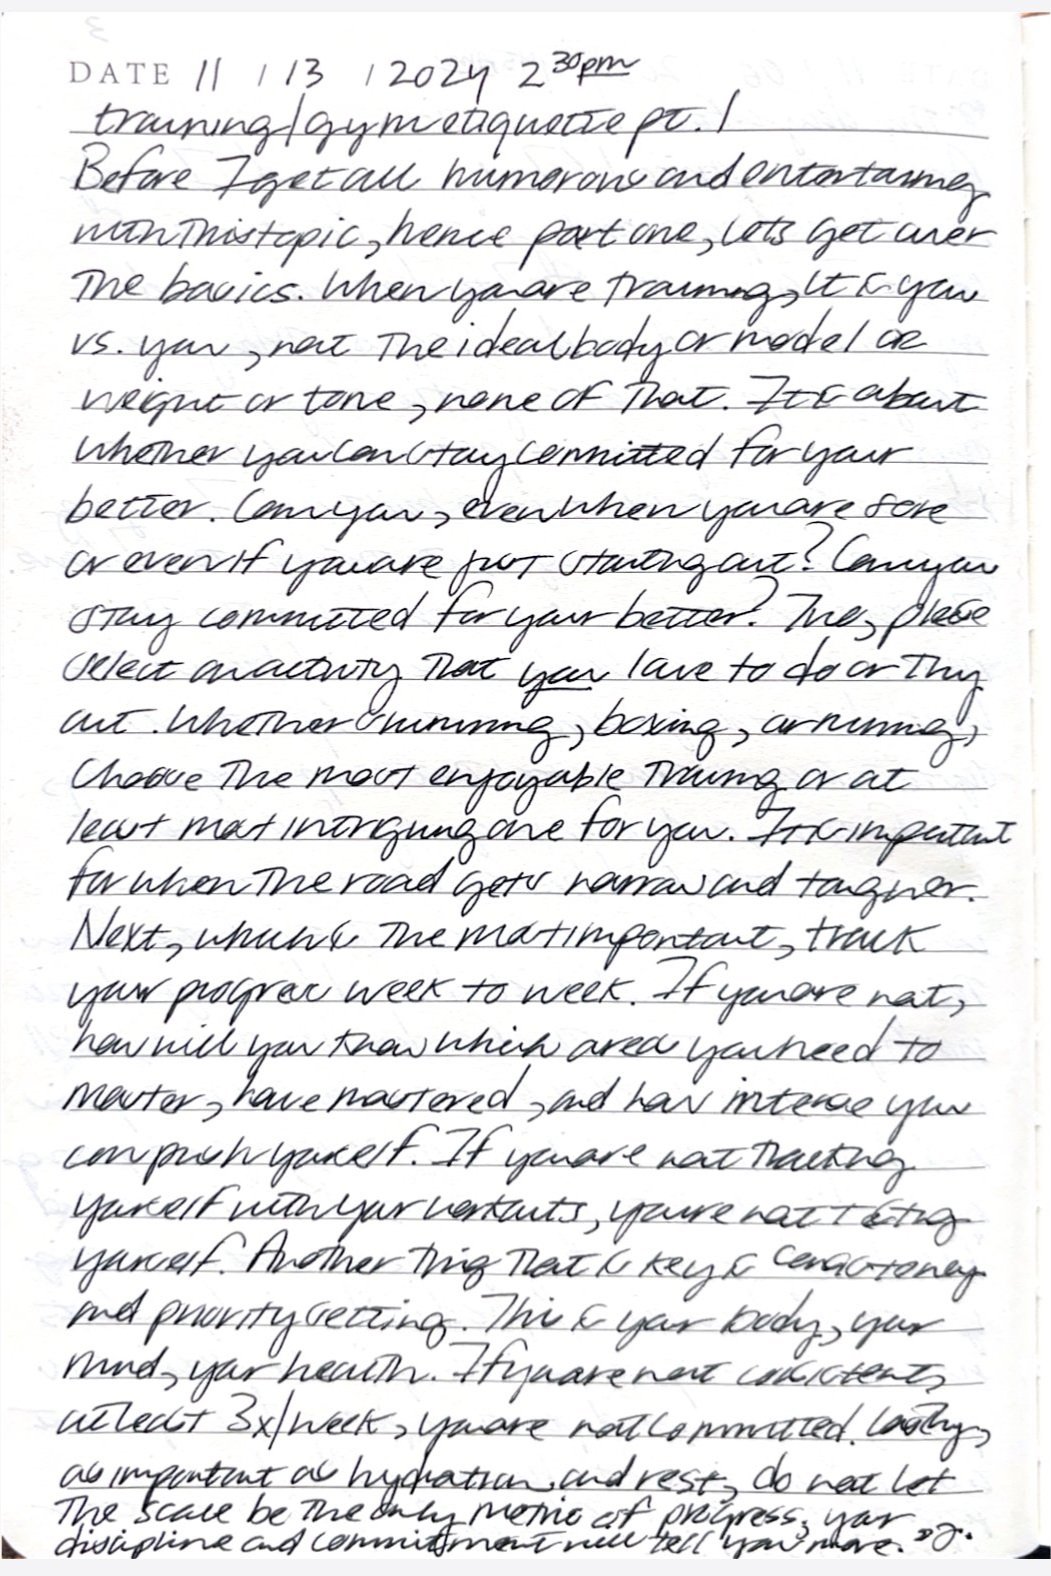 DATE 11 / 13 / 2024 2 30pm
training/gym etiquette pt. 1
Before I get all humorous and entertaining
with this topic, hence part one, lets get over
The basics. When you are training, It is you
vs. you, not The ideal body or model or
weight or tone, none of That. It is about
whether you can stay committed for your
better. Can you, even when you are sore
or even if you are just starting out? Can you
stay committed for your better? Two, please
select an activity That you love to do or Thy
out. Whether swimming, boxing, or running,
Choose The most enjoyable Training or at
least most intriguing one for you. It is important
for when The road gets narrow and tougher.
Next, which is The most important, track
your progress week to week. If you are not,
how will you know which area you need to
master, have mastered, and how intense you
can push yourself. If you are not Tracking
yourself with your workouts, you're not testing
yourself. Another Thing That is key is consistency
and priority setting. This is your body, your
mind, your health. If you are not consistent,
at least 3x/week, you are not committed. Lastly,
as important as hydration and rest, do not let
The scale be The only metric of progress, your
discipline and commitment will tell you more.